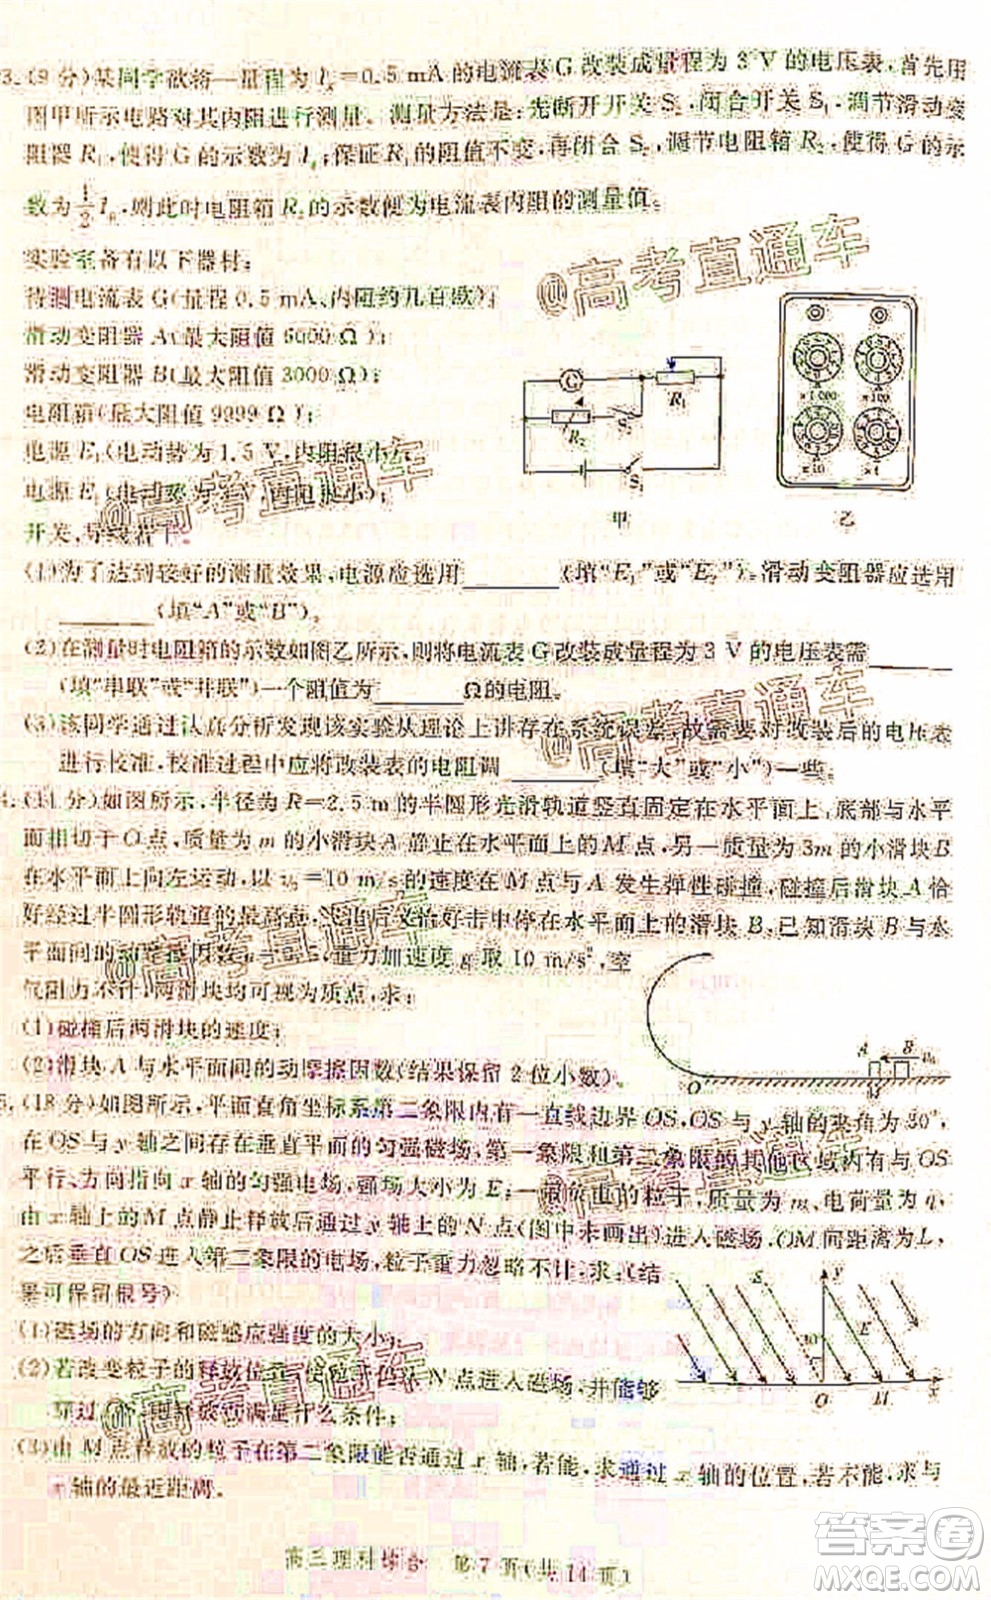 3.(9分)某同学欲将一量程为Ig=0.5 mA的电流表G改装成量程为3 V的电压表,首先用
图甲所示电路对其内阻进行测量。测量方法是:先断开开关S2,闭合开关S1,调节滑动变
阻器R1,使得G的示数为Ig;保证R1的阻值不变,再闭合S2,调节电阻箱R2,使得G的示
数为1/2 Ig,则此时电阻箱R2的示数便为电流表内阻的测量值。
实验室备有以下器材:
待测电流表G(量程0.5 mA,内阻约几百欧);
滑动变阻器A(最大阻值 Ω);
滑动变阻器B(最大阻值3000 Ω);
电阻箱(最大阻值9999 Ω);
电源E1(电动势为1.5 V,内阻很小);
电源E2(电动势为 V,内阻很小);
开关,导线若干。
G
R1
R2
S2
S1
甲
×1000
×100
×10
×1
乙
(1)为了达到较好的测量效果,电源应选用______(填“E1”或“E2”),滑动变阻器应选用
______(填“A”或“B”)。
(2)在测量时电阻箱的示数如图乙所示,则将电流表G改装成量程为3 V的电压表需______
(填“串联”或“并联”)一个阻值为______Ω的电阻。
(3)该同学通过认真分析发现该实验从理论上讲存在系统误差,故需要对改装后的电压表
进行校准,校准过程中应将改装表的电阻调______(填“大”或“小”)一些。
4.(11分)如图所示,半径为R=2.5 m的半圆形光滑轨道竖直固定在水平面上,底部与水平
面相切于O点,质量为m的小滑块A静止在水平面上的M点,另一质量为3m的小滑块B
在水平面上向左运动,以v0=10 m/s的速度在M点与A发生弹性碰撞,碰撞后滑块A恰
好经过半圆形轨道的最高点,飞出后又恰好击中停在水平面上的滑块B,已知滑块B与水
平面间的动摩擦因数 重力加速度g取10 m/s²,空
气阻力不计,两滑块均可视为质点,求:
(1)碰撞后两滑块的速度;
(2)滑块A与水平面间的动摩擦因数(结果保留2位小数)。
O
A
B
v0
M
5.(18分)如图所示,平面直角坐标系第二象限内有一直线边界OS,OS与y轴的夹角为30°,
在OS与y轴之间存在垂直平面的匀强磁场,第一象限和第二象限的其他区域内有与OS
平行、方向指向x轴的匀强电场,强场大小为E;一带 电的粒子,质量为m,电荷量为q,
由x轴上的M点静止释放后通过y轴上的N点(图中未画出)进入磁场,OM间距离为L,
之后垂直OS进入第二象限的电场,粒子重力忽略不计,求:(结
果可保留根号)
(1)磁场的方向和磁感应强度的大小;
(2)若改变粒子的释放位置,使粒子仍从N点进入磁场,并能够
穿过OS, 释放 满足什么条件;
(3)由M点释放的粒子在第二象限能否通过x轴,若能,求通过x轴的位置,若不能,求与
x轴的最近距离。
S
y
30°
E
O
M
x
高三理科综合 第7页(共14页)
@高考直通车
@高考直通车
@高考直通车
@高考直通车
@高考直通车
@高考直通车
答案卷
MXQE.COM